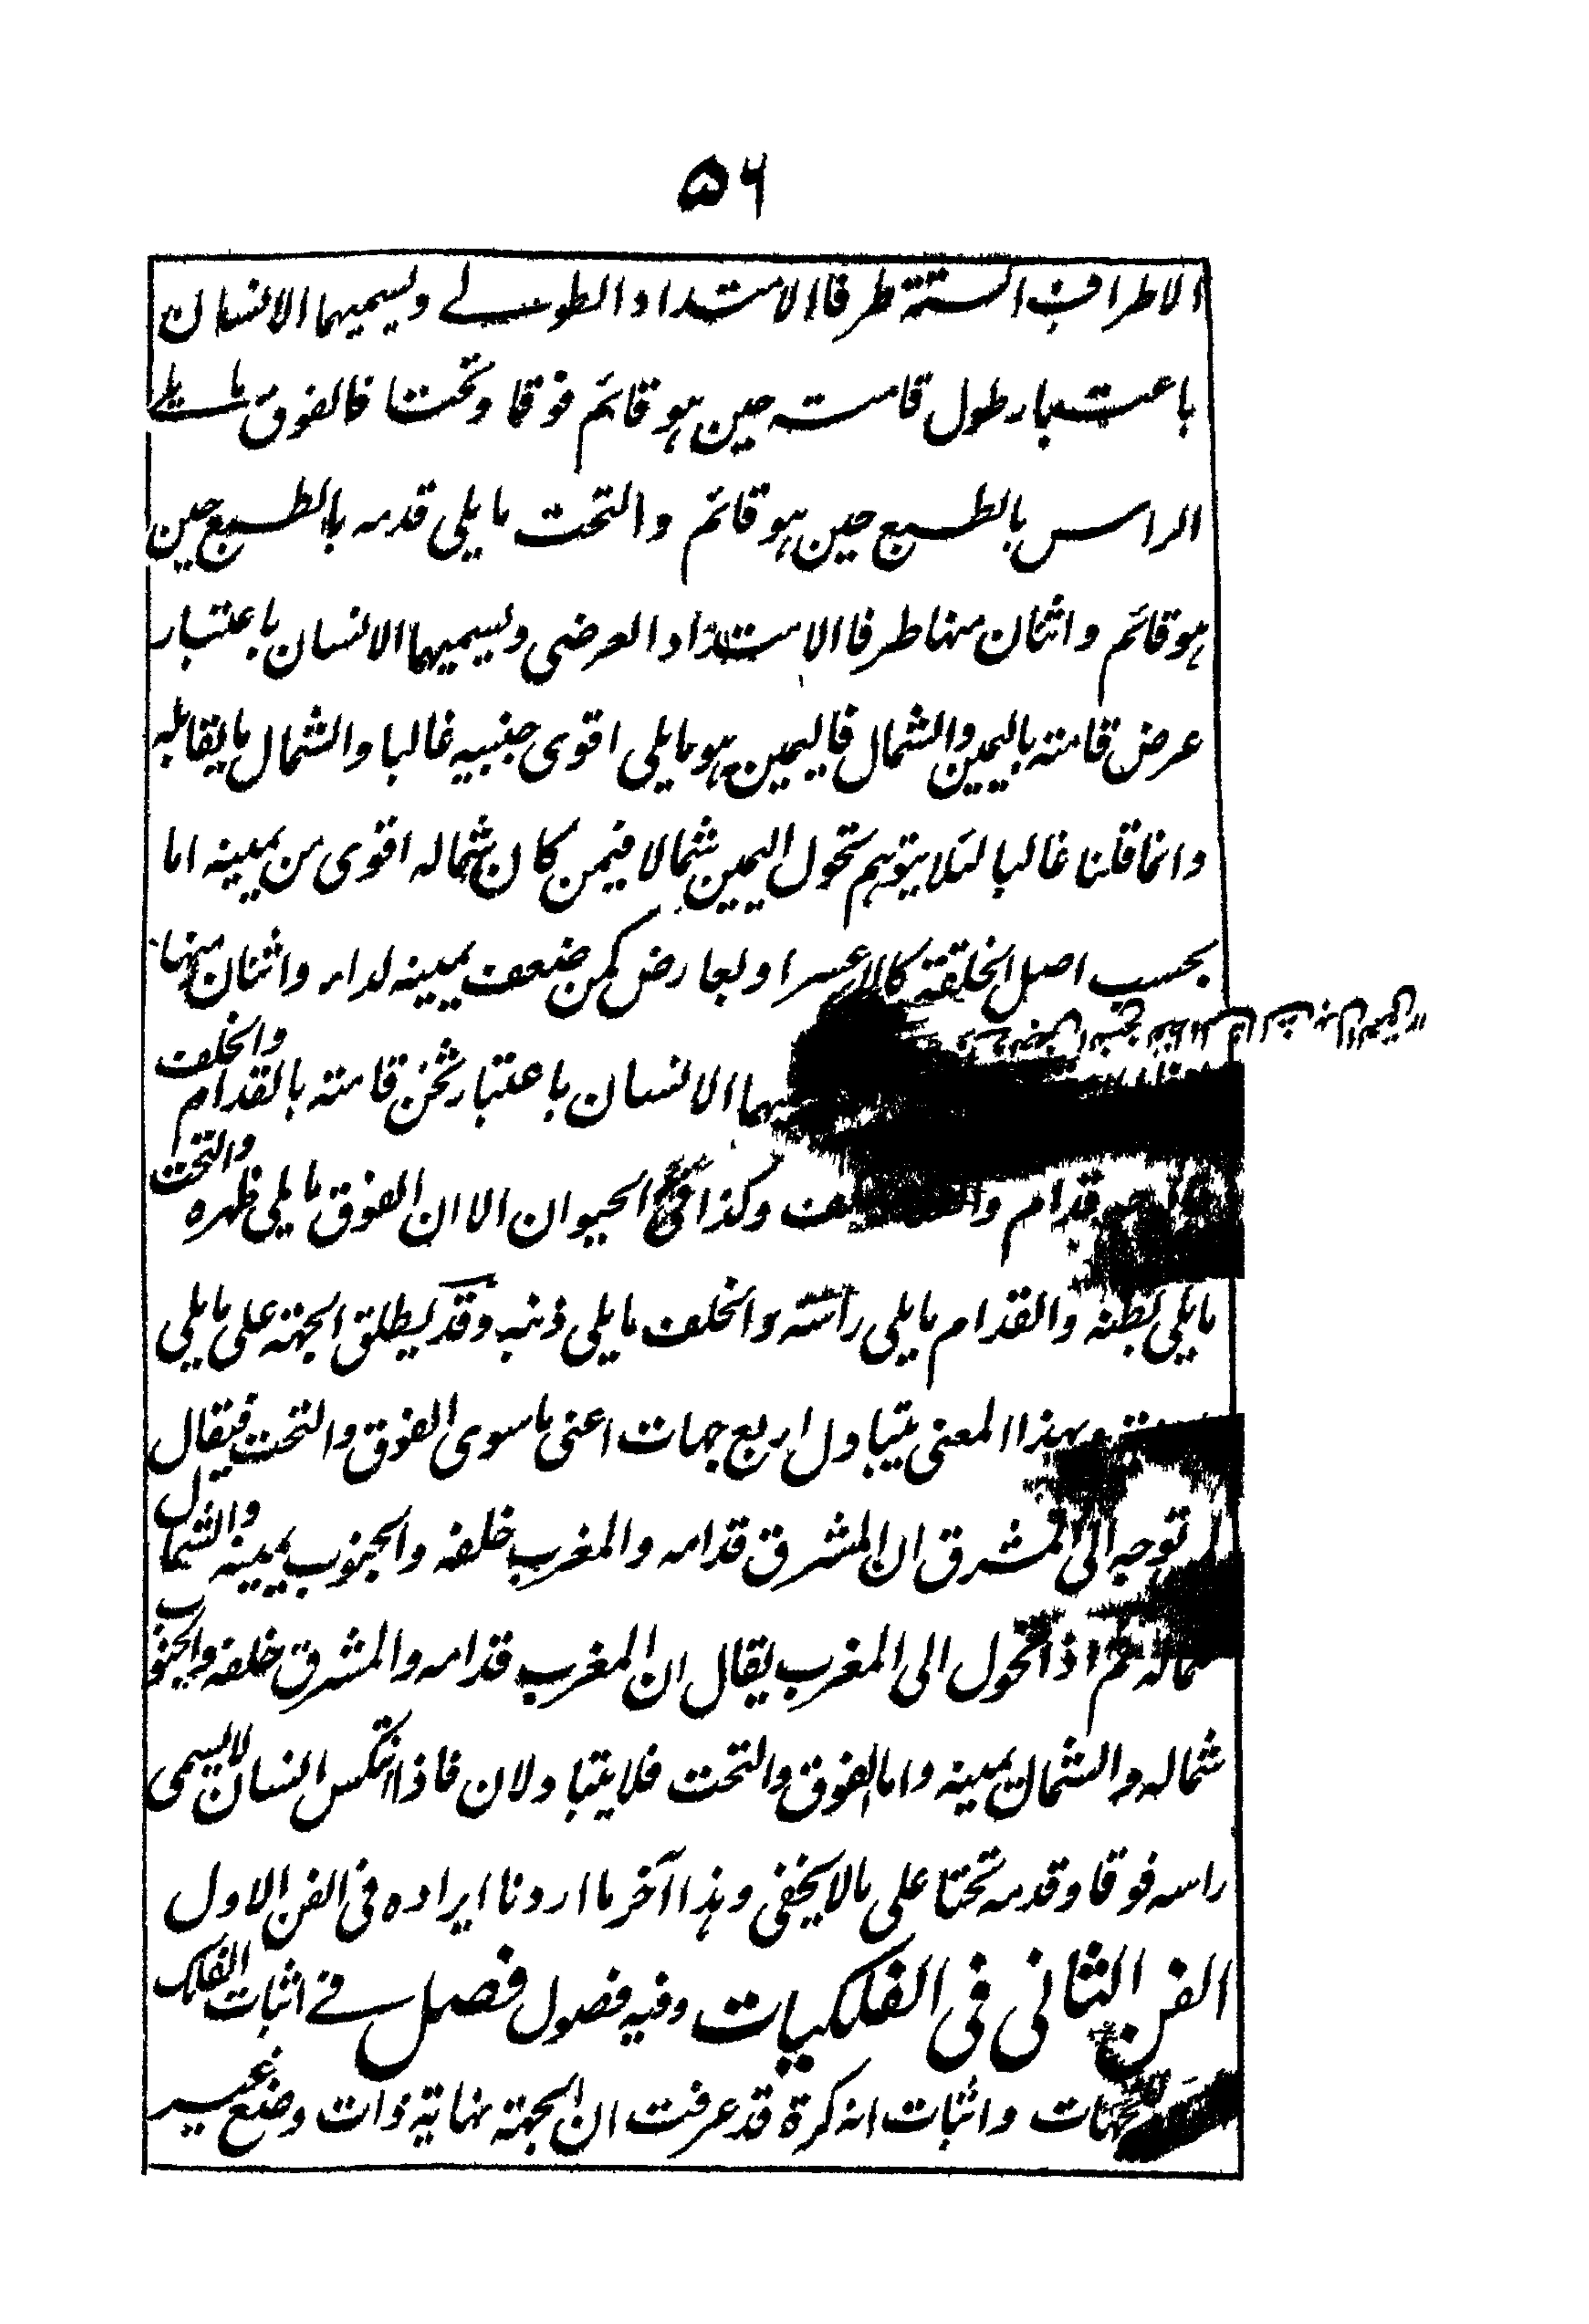 ۵۶
الاطراف الستة طرفا الامتداد الطولے ويسميهما الانسان
باعتبار طول قامته حين هو قائم فوقا وتحتا فالفوق ما يلے
الراس بالطبع حين هو قائم والتحت ما يلى قدمه بالطبع حين
هو قائم واثنان منها طرفا الامتداد العرضى ويسميهما الانسان باعتبار
عرض قامته باليمين والشمال فاليمين هو ما يلى اقوى جنبيه غالبا والشمال ما يقابله
وانما قلنا غالبا لئلا يتوهم تحول اليمين شمالا فيمن كان شماله اقوى من يمينه اما
بحسب اصل الخلقة كالاعسر او لعارض كمن ضعف يمينه لداء واثنان منها
الانسان باعتبار ثخن قامته بالقدام والخلف
قدام وكذا فى الحيوان الا ان الفوق ما يلى ظهره والتحت
ما يلى بطنه والقدام ما يلى راسه والخلف ما يلى ذنبه وقد يطلق الجهة على ما يلى
وبهذا المعنى يتبادل اربع جهات اعنى ما سوى الفوق والتحت فيقال
توجه الى المشرق ان المشرق قدامه والمغرب خلفه والجنوب يمينه والشمال
شماله ثم اذا تحول الى المغرب يقال ان المغرب قدامه والمشرق خلفه والجنوب
شماله والشمال يمينه واما الفوق والتحت فلا يتبادلان فاذا انتكس انسان لا يسمى
راسه فوقا وقدمه تحتا على ما لا يخفى وهذا آخر ما اردنا ايراده فى الفن الاول
الفن الثانى فى الفلكيات وفيه فصول فصل فے اثبات الفلك
للجهات واثبات انه كرة قد عرفت ان الجهة نهاية ذات وضع غير